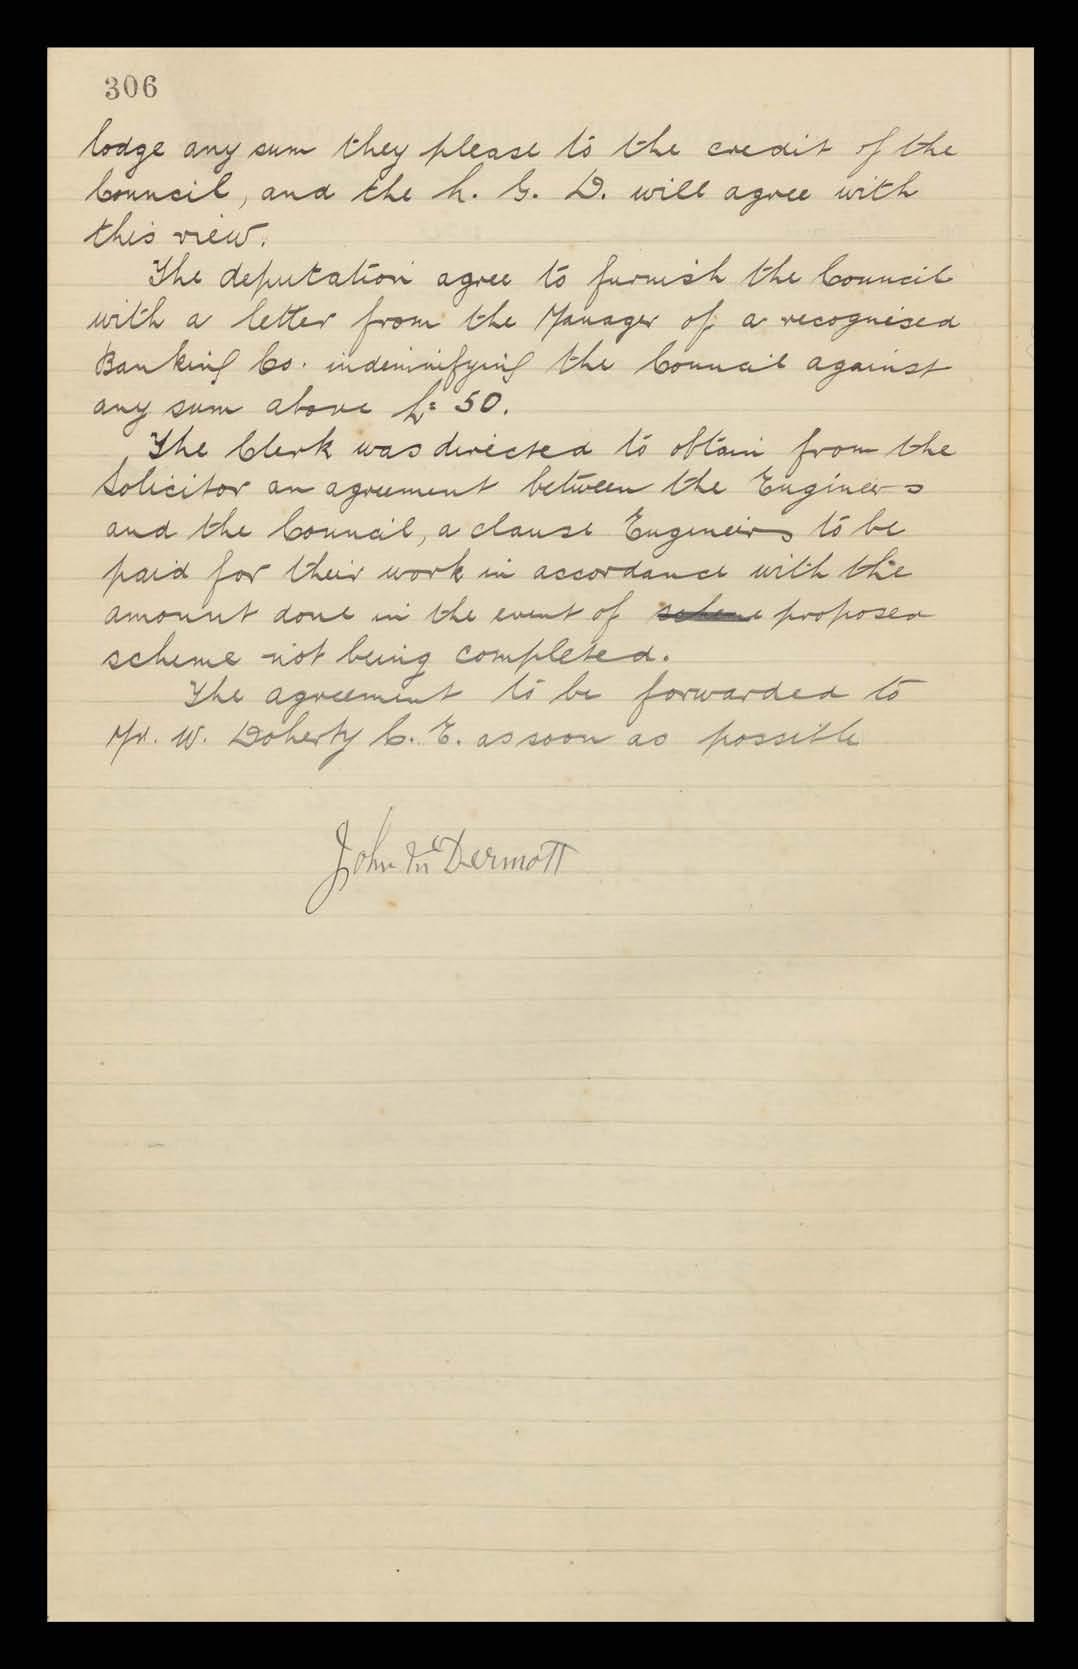 306
lodge any sum they please to the credit of the
Council, and the L. G. D. will agree with
this view.
The deputation agree to furnish the Council
with a letter from the Manager of a recognised
Banking Co. indemnifying the Council against
any sum above £ 50.
The Clerk was directed to obtain from the
Solicitor an agreement between the Engineers
and the Council, a clause Engineers to be
paid for their work in accordance with the
amount done in the event of scheme proposed
scheme not being completed.
The agreement to be forwarded to
Mr. W. Doherty C. E. as soon as possible
John McDermott